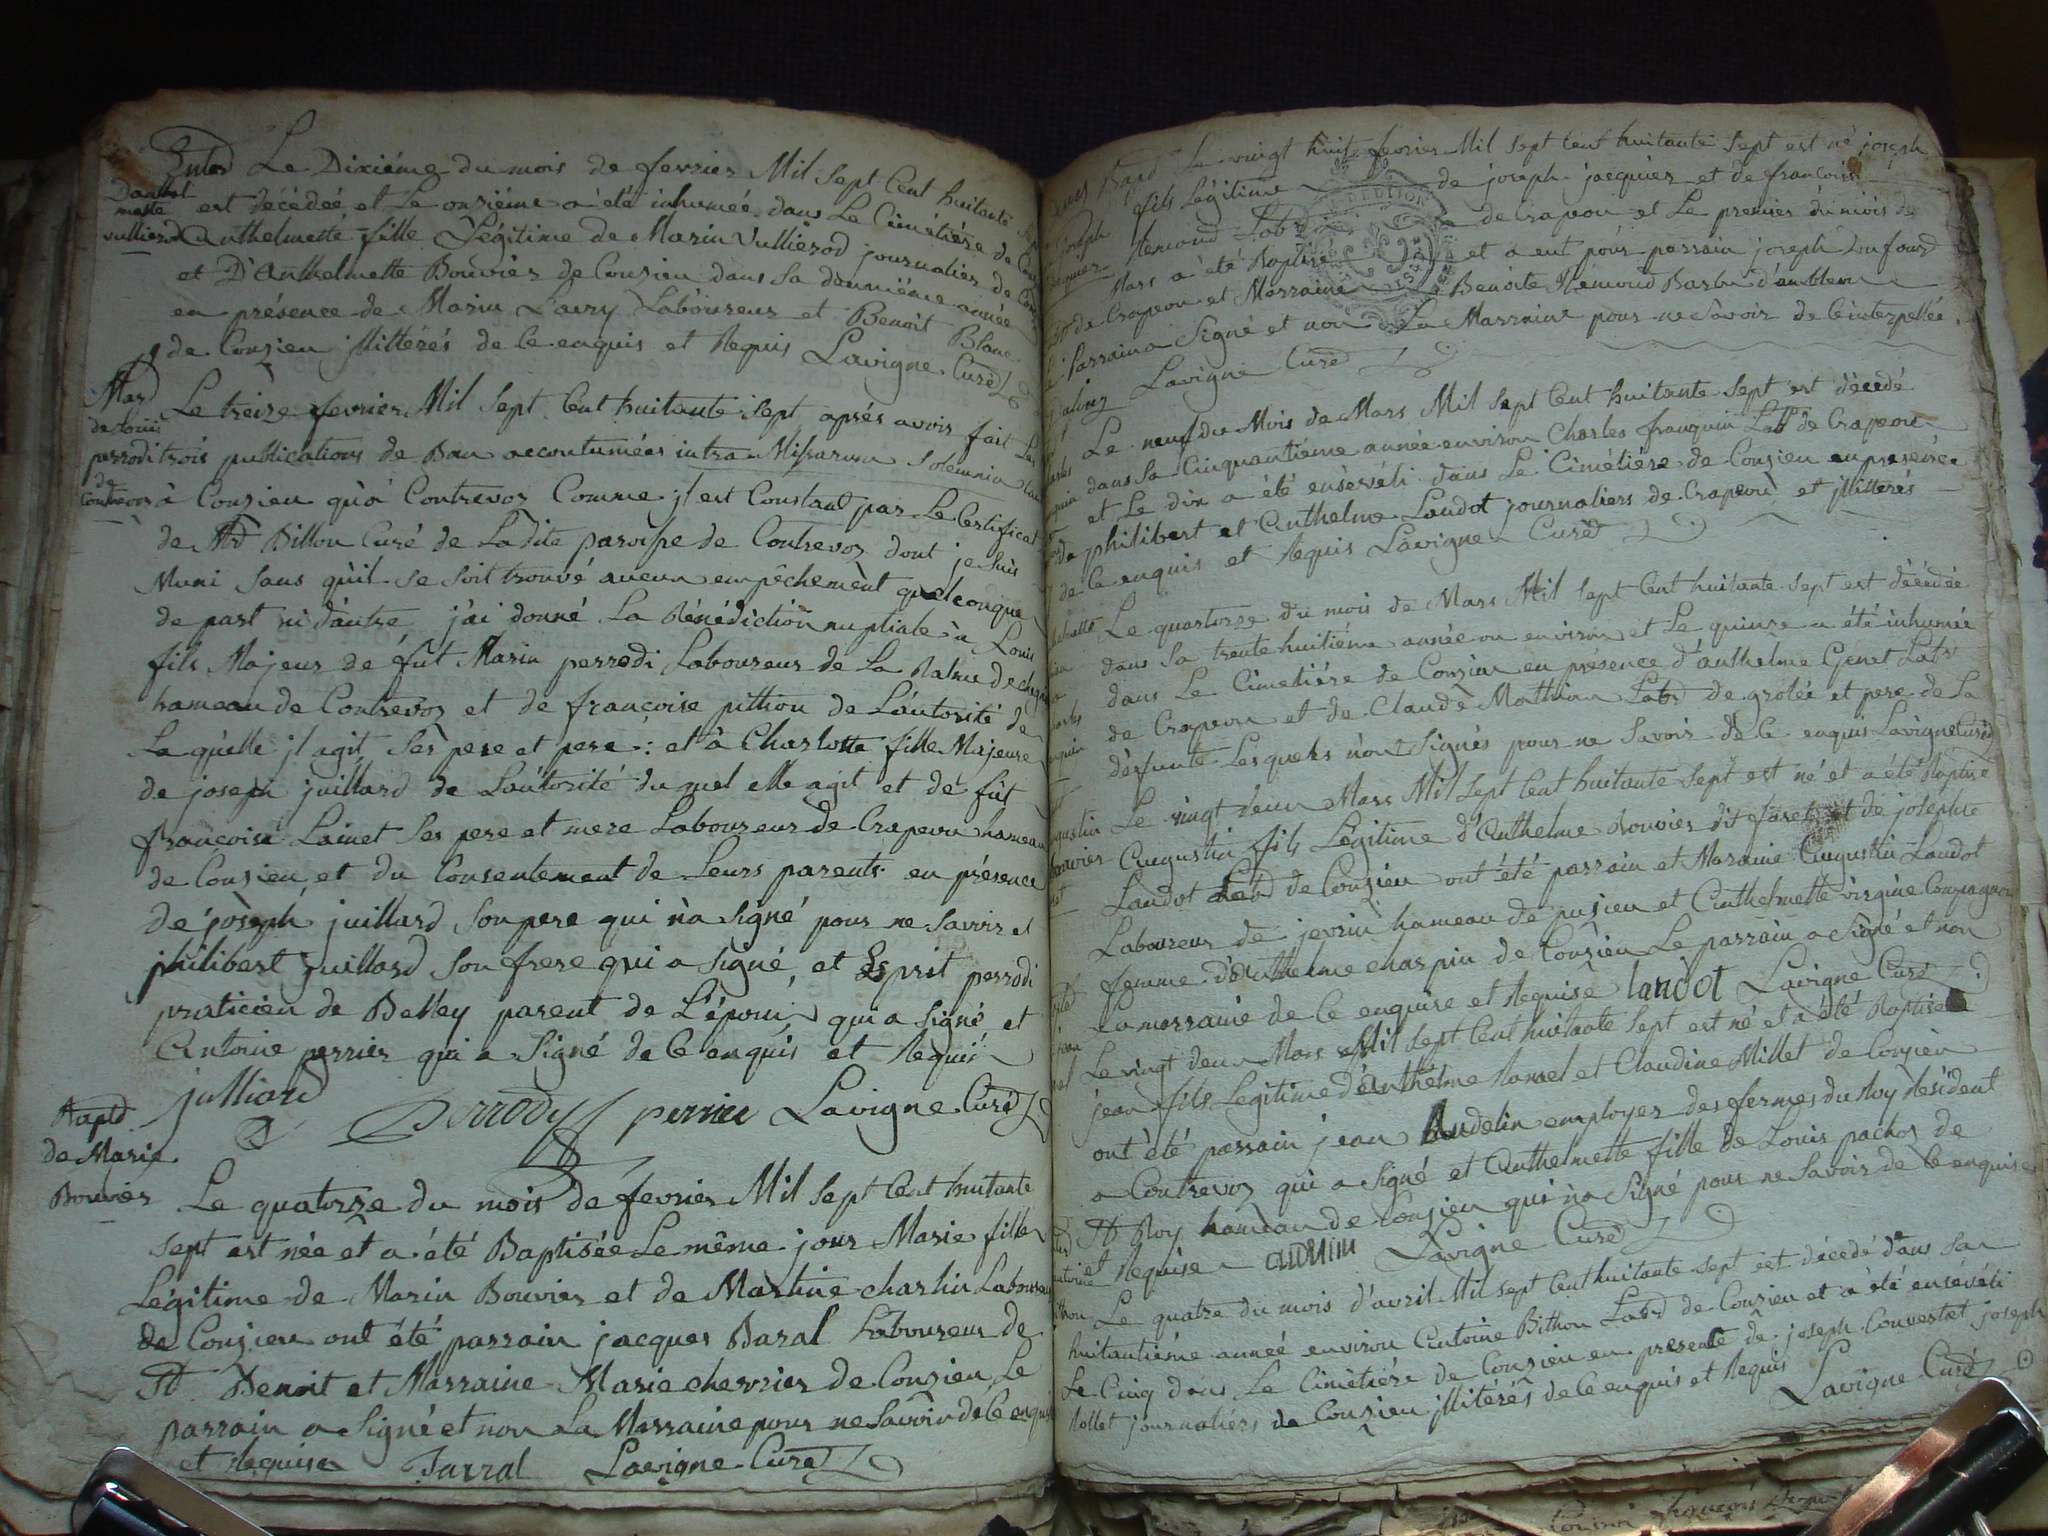 Le Dixiéme du mois de fevrier Mil sept Cent huitante
est décédeé et Le onziéme a été inhumée dans Le Cimétiére de
vullierod Anthelmette fille Légitime de Marin Vullierod journalier de
et D'Anthelmette Bouvier de Conzieu dans sa année
en présence de Marin Laboureur et Benoit Blanc
de Conzieu jllittérés de Ce enquis et Requis Lavigne Curé
Mard
de Louis
perrodi
de
Contrevoz
Le treize fevrier Mil sept Cent huitante sept aprés avoir fait Les
trois publications de Ban accoutumées intra Missarum solemnia
à Conzieu qu'à Contrevoz Comme jl est Constant par Le Certificat
de Mr Billon Curé de Ladite paroisse de Contrevoz dont je suis
Muni sans qu'il se soit trouvé aucun empêchement quelconque
de part ni d'autre j'ai donné La Bénédiction nuptiale à Louis
fils Majeur de fût Marin perrodi Laboureur de La Balme
hameau de Contrevoz et de françoise pithon de L'autorité de
Laquelle jl agit ses pere et pere : et à Charlotte fille Majeure
de joseph juillard de L'autorité du quel elle agit et de fût
françoise Lainet ses pere et mere Laboureur de Crapeou hameau
de Conzieu et du Consentement de Leurs parents en présence
de joseph juillard son pere qui n'a signé pour ne savoir et
philibert juillard son frere qui a signé, et Esprit perrodi
praticien de Belley parent de L'époux qui a signé et
Antoine perrier qui a signé de Ce enquis et Requis
julliard Perrody perrier Lavigne Curé
Bapt
de Marie
Bouvier
Le quatorze du mois de fevrier Mil sept Cent huitante
sept est née et a été Baptisée Le même jour Marie fille
Légitime de Marin Bouvier et de Martine charlin Laboureur
de Conzieu ont été parrain jacques Baral Laboureur de
St Benoit et Marraine Marie chevrier de Conzieu Le
parrain a signé et non La Marraine pour ne savoir de Ce enquise
et Requise Barral Lavigne Curé
Le vingt huit fevrier Mil sept Cent huitante sept est né joseph
fils Légitime de joseph jacquier et de françoise
Remond Labr de Crapeou et Le premier du mois de
Mars a été Baptisé et a eut pour parrain joseph
de Crapeou et Marraine Benoite Rémond
Parrain a signé et non La Marraine pour ne savoir de Ce interpellée
Lavigne Curé
Le neuf du Mois de Mars Mil sept Cent huitante sept est décédé
dans sa Cinquantiéme année environ Charles franquin Labr de Crapeou
et Le dix a été enséveli dans Le Cimétiere de Conzieu en présence
de philibert et Anthelme Landot journaliers de Crapeou et jllitérés
de Ce enquis et Requis Lavigne Curé
Le quatorze du mois de Mars Mil sept Cent huitante sept est décédée
dans sa trente huitiéme année ou environ et Le quinze a été inhumée
dans Le Cimetiére de Conzieu en présence d'anthelme Genet Labr
de Crapeou et de Claude Mathieu Labr de groleé et pere de La
défunte Lesquels n'ont signés pour ne savoir de Ce enquis Lavigne Curé
Le vingt deux Mars Mil sept Cent huitante sept est né et a été Baptisé
Augustin fils Légitime d'Anthelme Bouvier dit et de josephte
Landot Labr de Conzieu ont été parrain et Maraine Augustin Landot
Laboureur de jevrin hameau de pugieu et Anthelmette
femme d'Anthelme charpin de Conzieu Le parrain a signé et non
La marraine de Ce enquise et Requise landot Lavigne Curé
Le vingt deux Mars Mil sept Cent huitante sept est né et a été Baptisé
jean fils Légitime d'Anthelme et Claudine Millet de Conzieu
ont été parrain jean Audelin employer des fermes du Roy Résident
a Contrevoz qui a signé et Anthelmette fille de Louis pachoz de
St Roy hameau de Conzieu qui n'a signé pour ne savoir de Ce enquise
et Requise Lavigne Curé
Le quatre du mois d'avril Mil sept Cent huitante sept est décedé dans sa
huitantiéme année environ Antoine Bithon Labr de Conzieu et a été enséveli
Le Cinq dans Le Cimétiére de Conzieu en présence de joseph et joseph
Rollet journaliers de Conzieu jllitérés de Ce enquis et Requis
Lavigne Curé